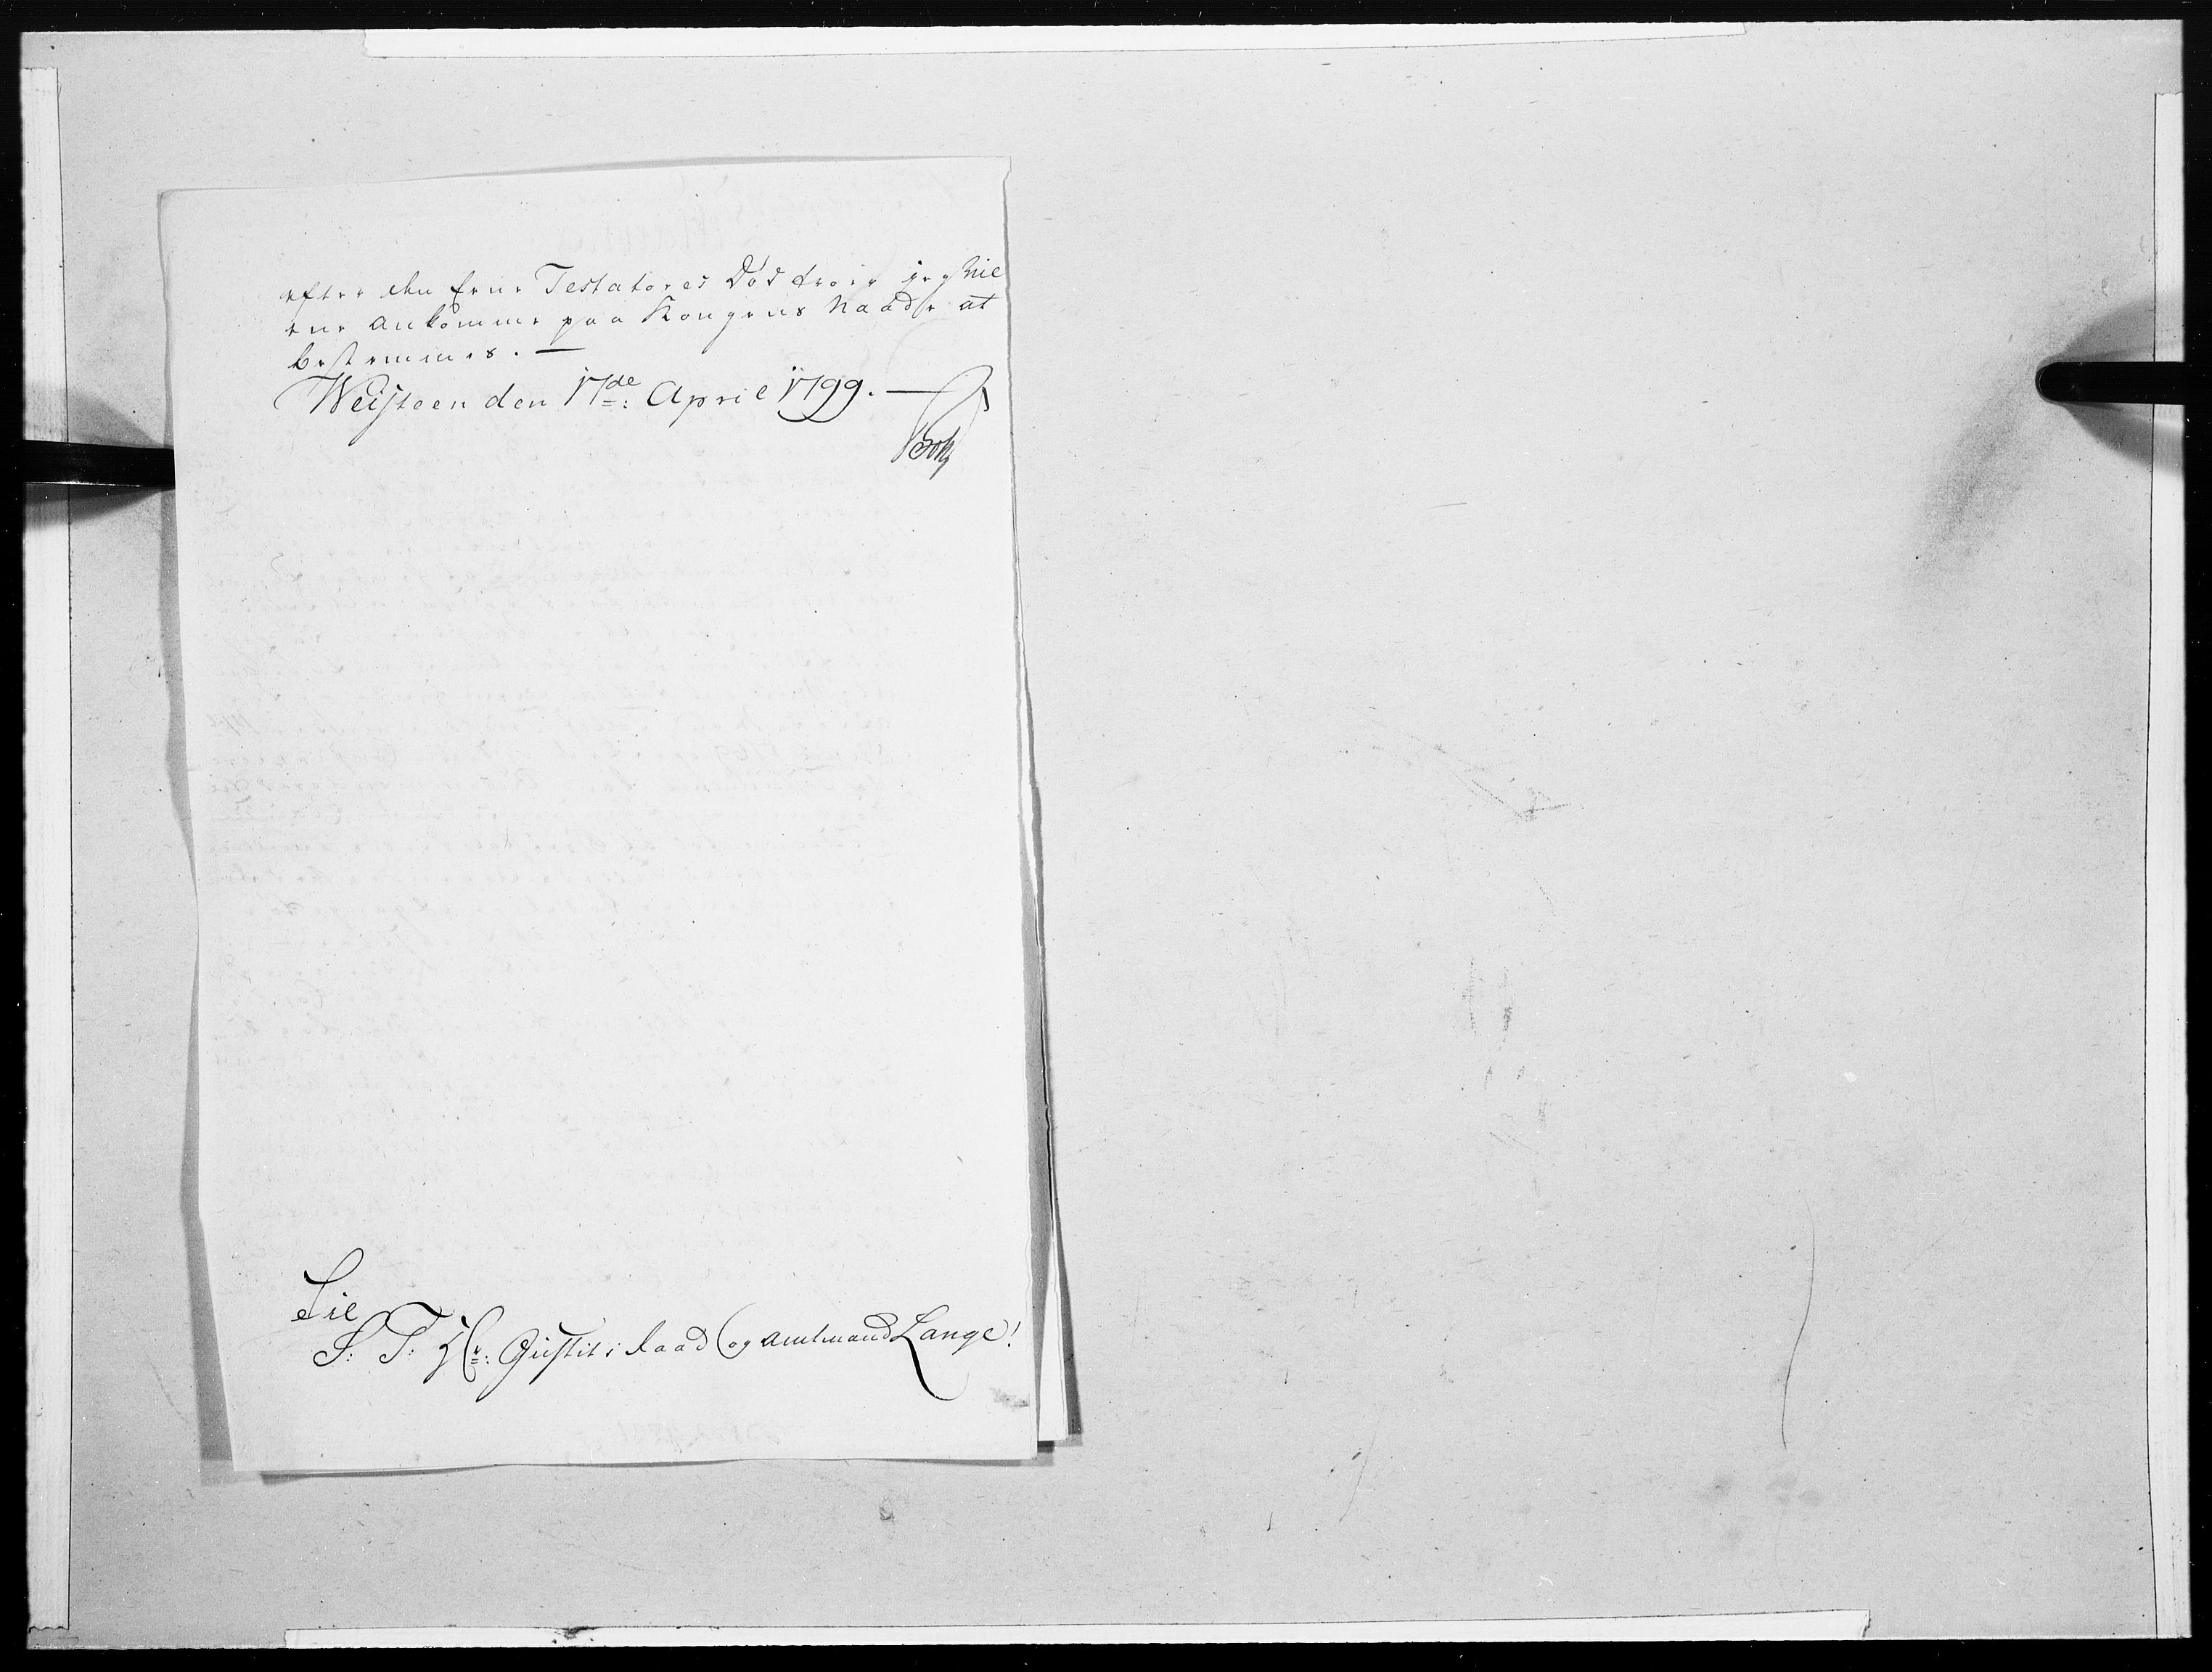 efter den Ene Testatores Död troer jeg vil
ene ankomme paa Kongens Naade at
bestemmes. —
Weisteen den 17de: April 1799. —
Til
S: T: Hr: Justits Raad og amtmand Lange!